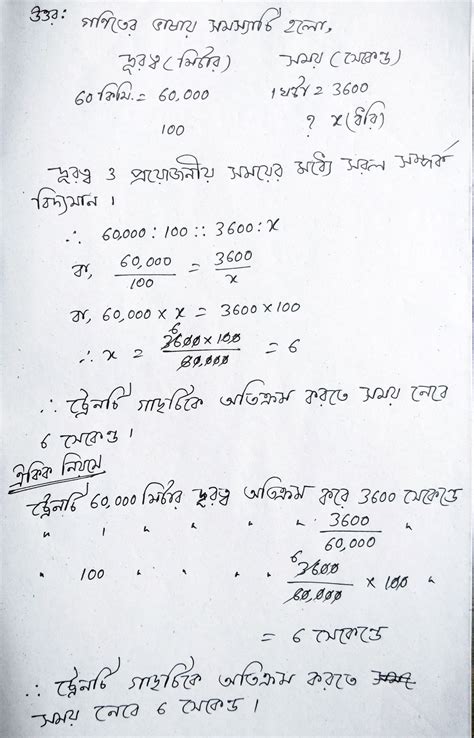 উত্তর: গণিতের ভাষায় সমস্যাটি হলো,
দূরত্ব (মিটার) সময় (সেকেন্ড)
60 কিমি. = 60,000 1 ঘন্টা = 3600
100 ? x (ধরি)
দূরত্ব ও প্রয়োজনীয় সময়ের মধ্যে সরল সম্পর্ক
বিদ্যমান ।
∴ 60,000 : 100 :: 3600 : x
বা, 60,000/100 = 3600/x
বা, 60,000 × x = 3600 × 100
∴ x = 3600 × 100/60,000 = 6
6
∴ ট্রেনটি গাছটিকে অতিক্রম করতে সময় নেবে
6 সেকেন্ড ।
ঐকিক নিয়মে
ট্রেনটি 60,000 মিটার দূরত্ব অতিক্রম করে 3600 সেকেন্ডে
" 1 " " " " 3600/60,000 "
" 100 " " " " 3600/60,000 × 100 "
6
= 6 সেকেন্ডে
∴ ট্রেনটি গাছটিকে অতিক্রম করতে
সময় নেবে 6 সেকেন্ড ।